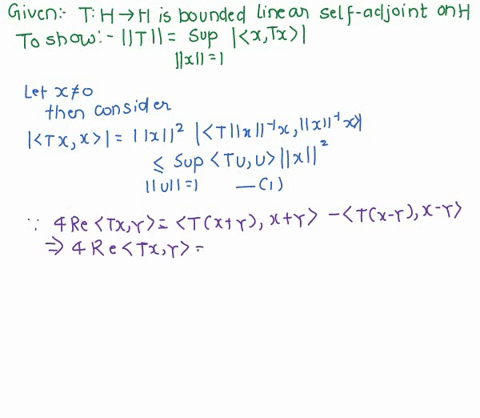 Given:- T: H→H is bounded linear self-adjoint on H
To show:- ||T|| = Sup |<x,Tx>|
||x||=1
Let x≠0
then consider
|<Tx,x>| = ||x||² |<T||x||⁻¹x, ||x||⁻¹x>|
≤ Sup <Tu,u> ||x||²
||u||=1 —(1)
∵ 4Re<Tx,y> = <T(x+y), x+y> - <T(x-y), x-y>
⇒ 4Re<Tx,y> =